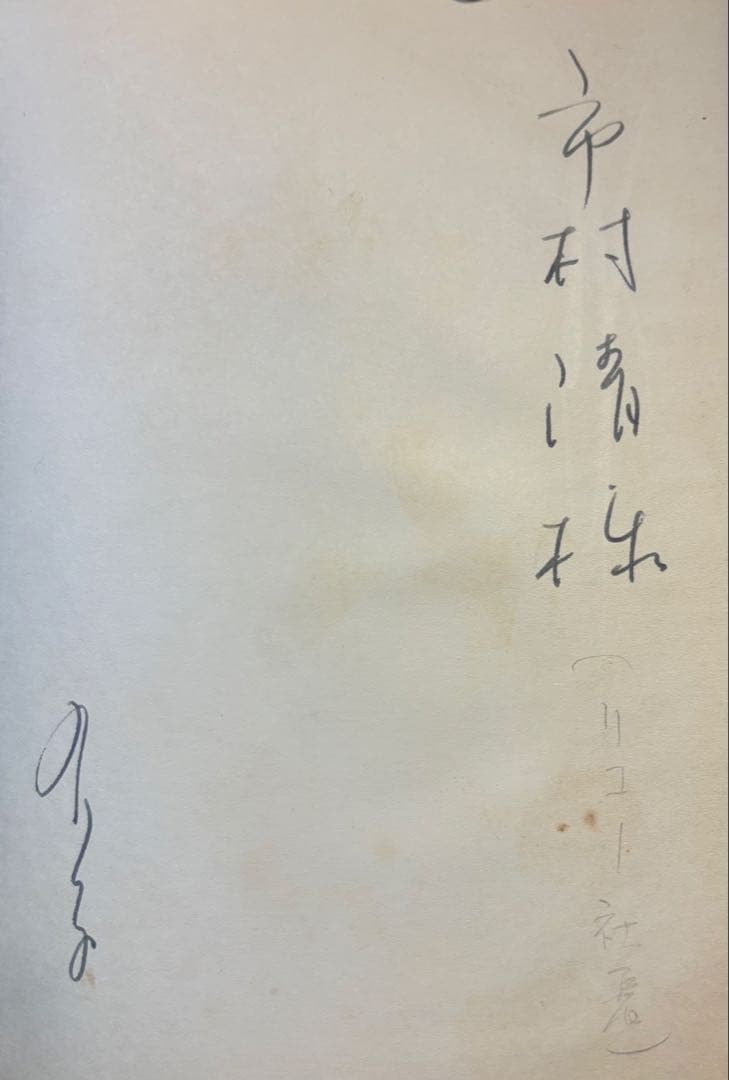 市村清様
(リコー社長)